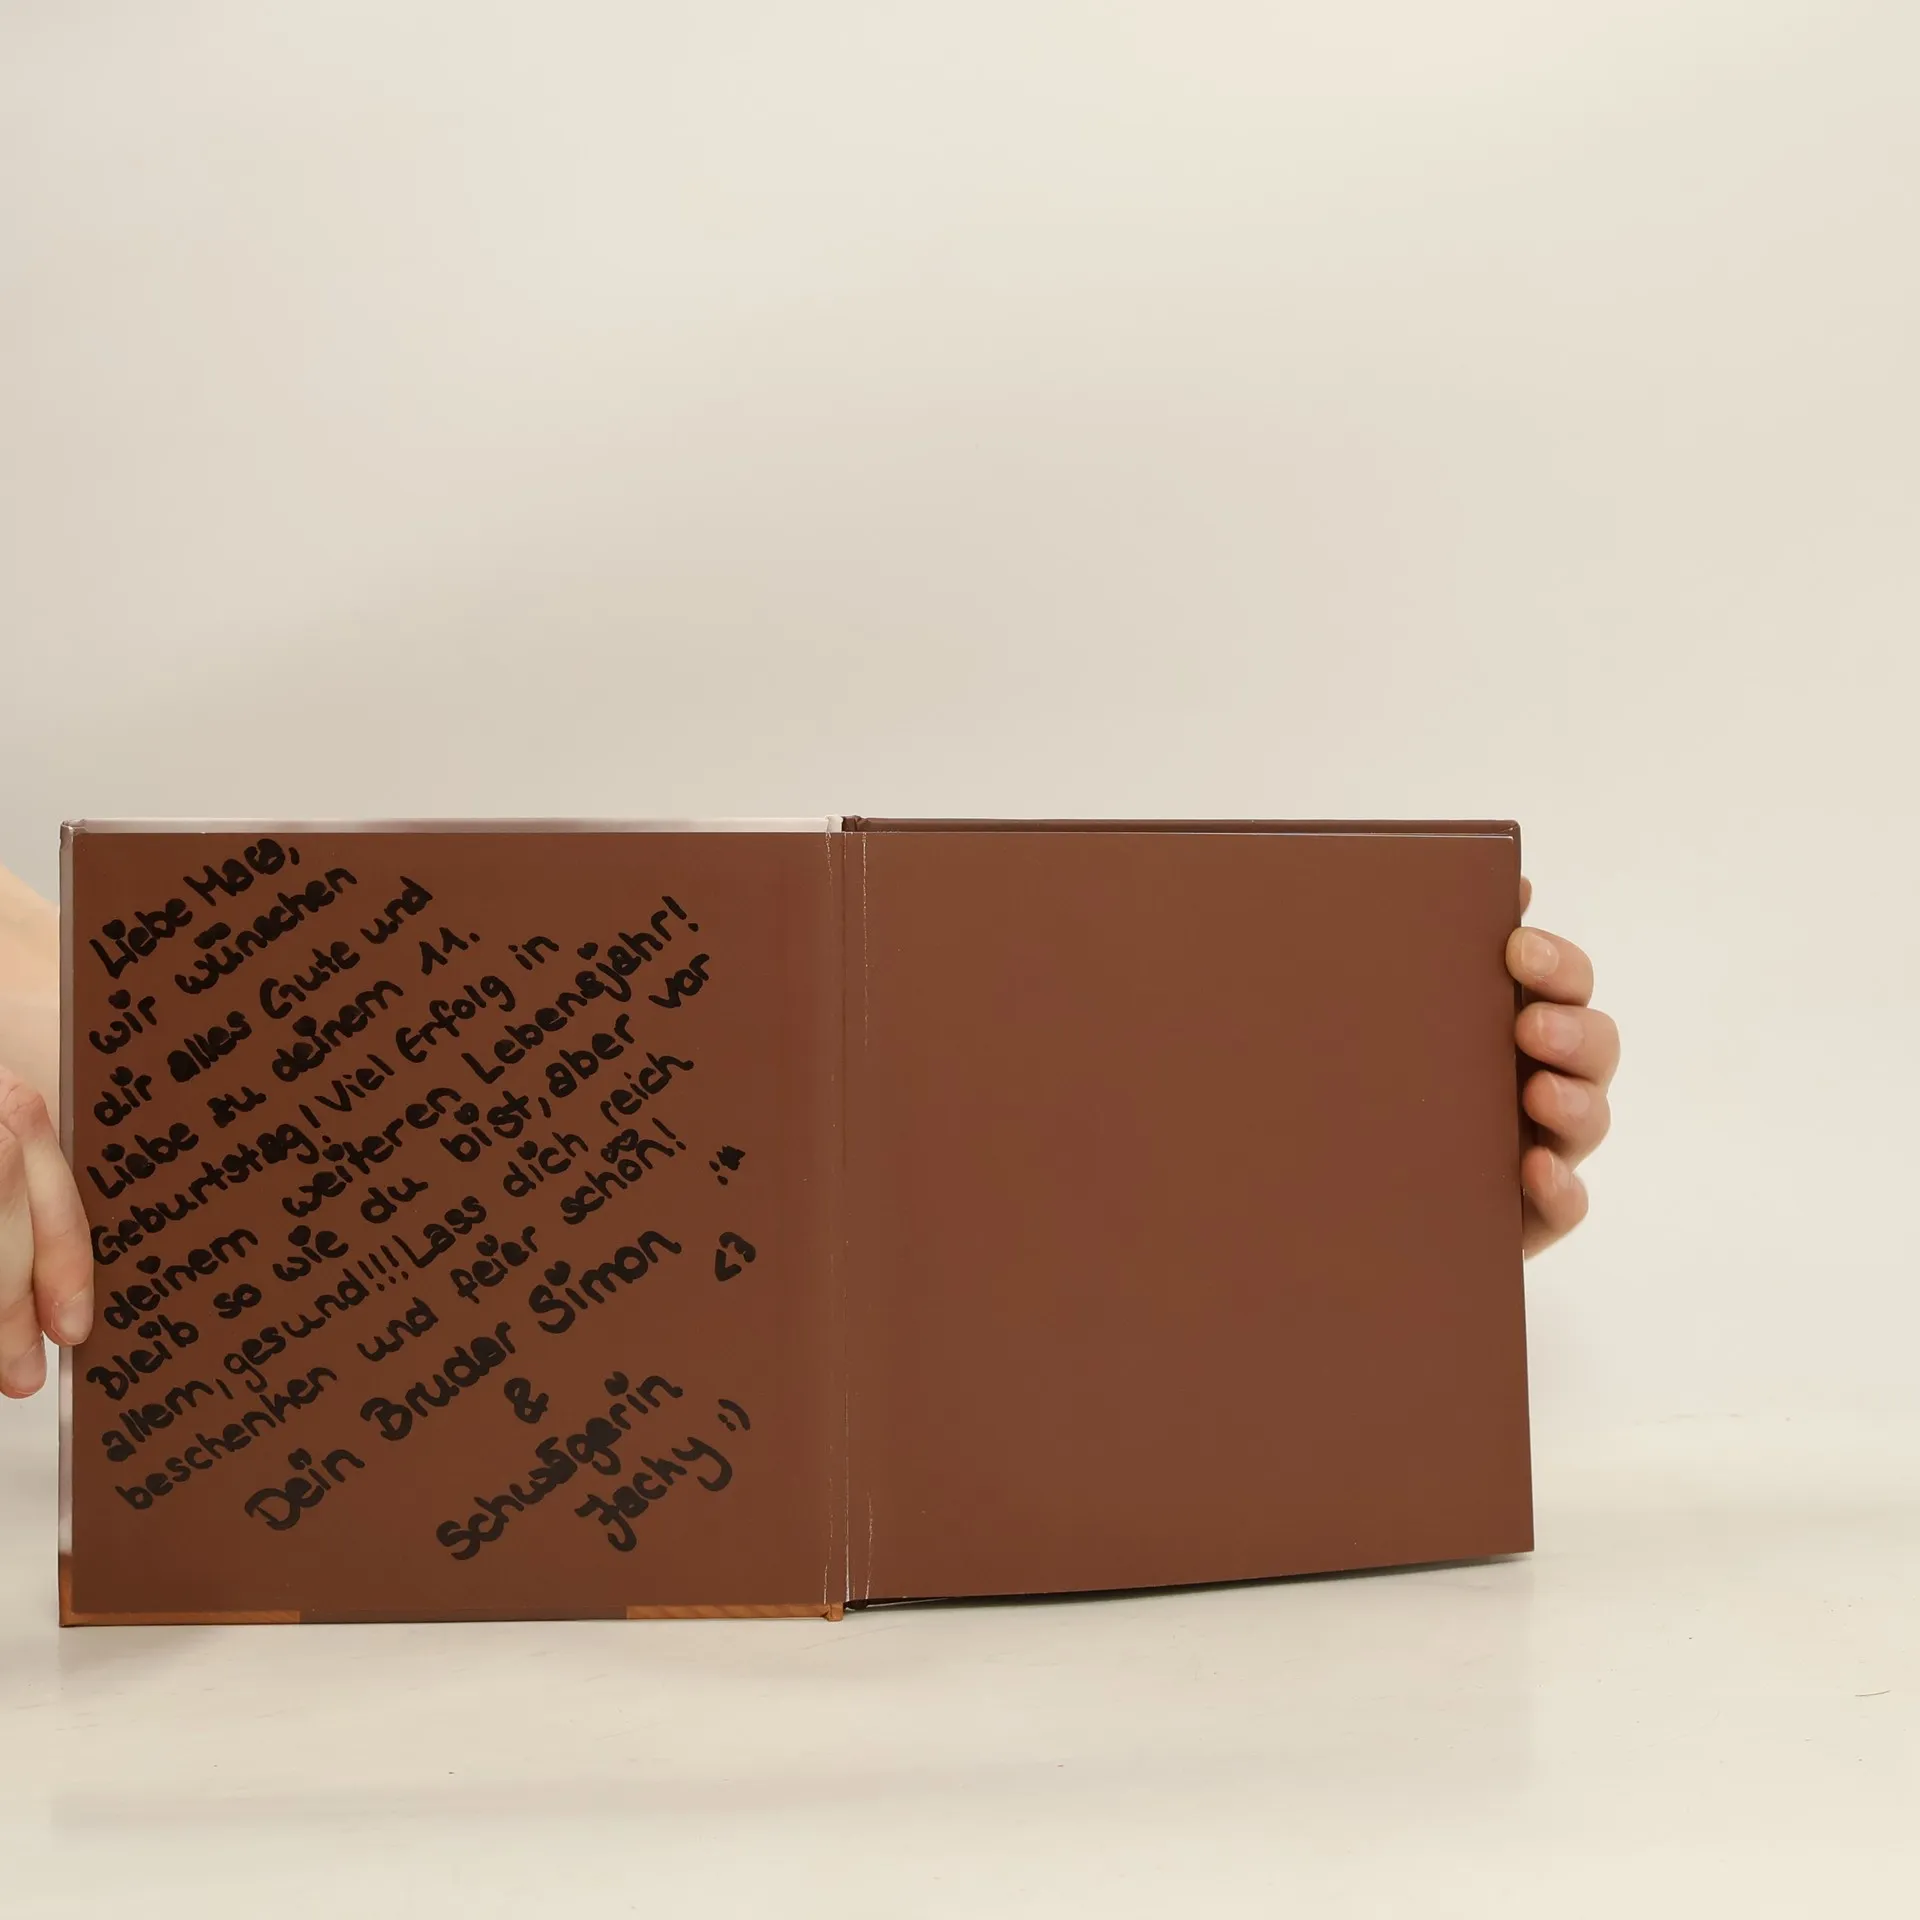 Liebe
wir wünschen
dir alles Gute und
Liebe zu deinem 11.
Geburtstag! Viel Erfolg in
deinem weiteren Lebensjahr!
Bleib so wie du bist, aber vor
allem, gesund!!! Lass dich reich
beschenken und feier schön!
:*
Dein Bruder Simon <3
&
Schwägerin
Jacky :)